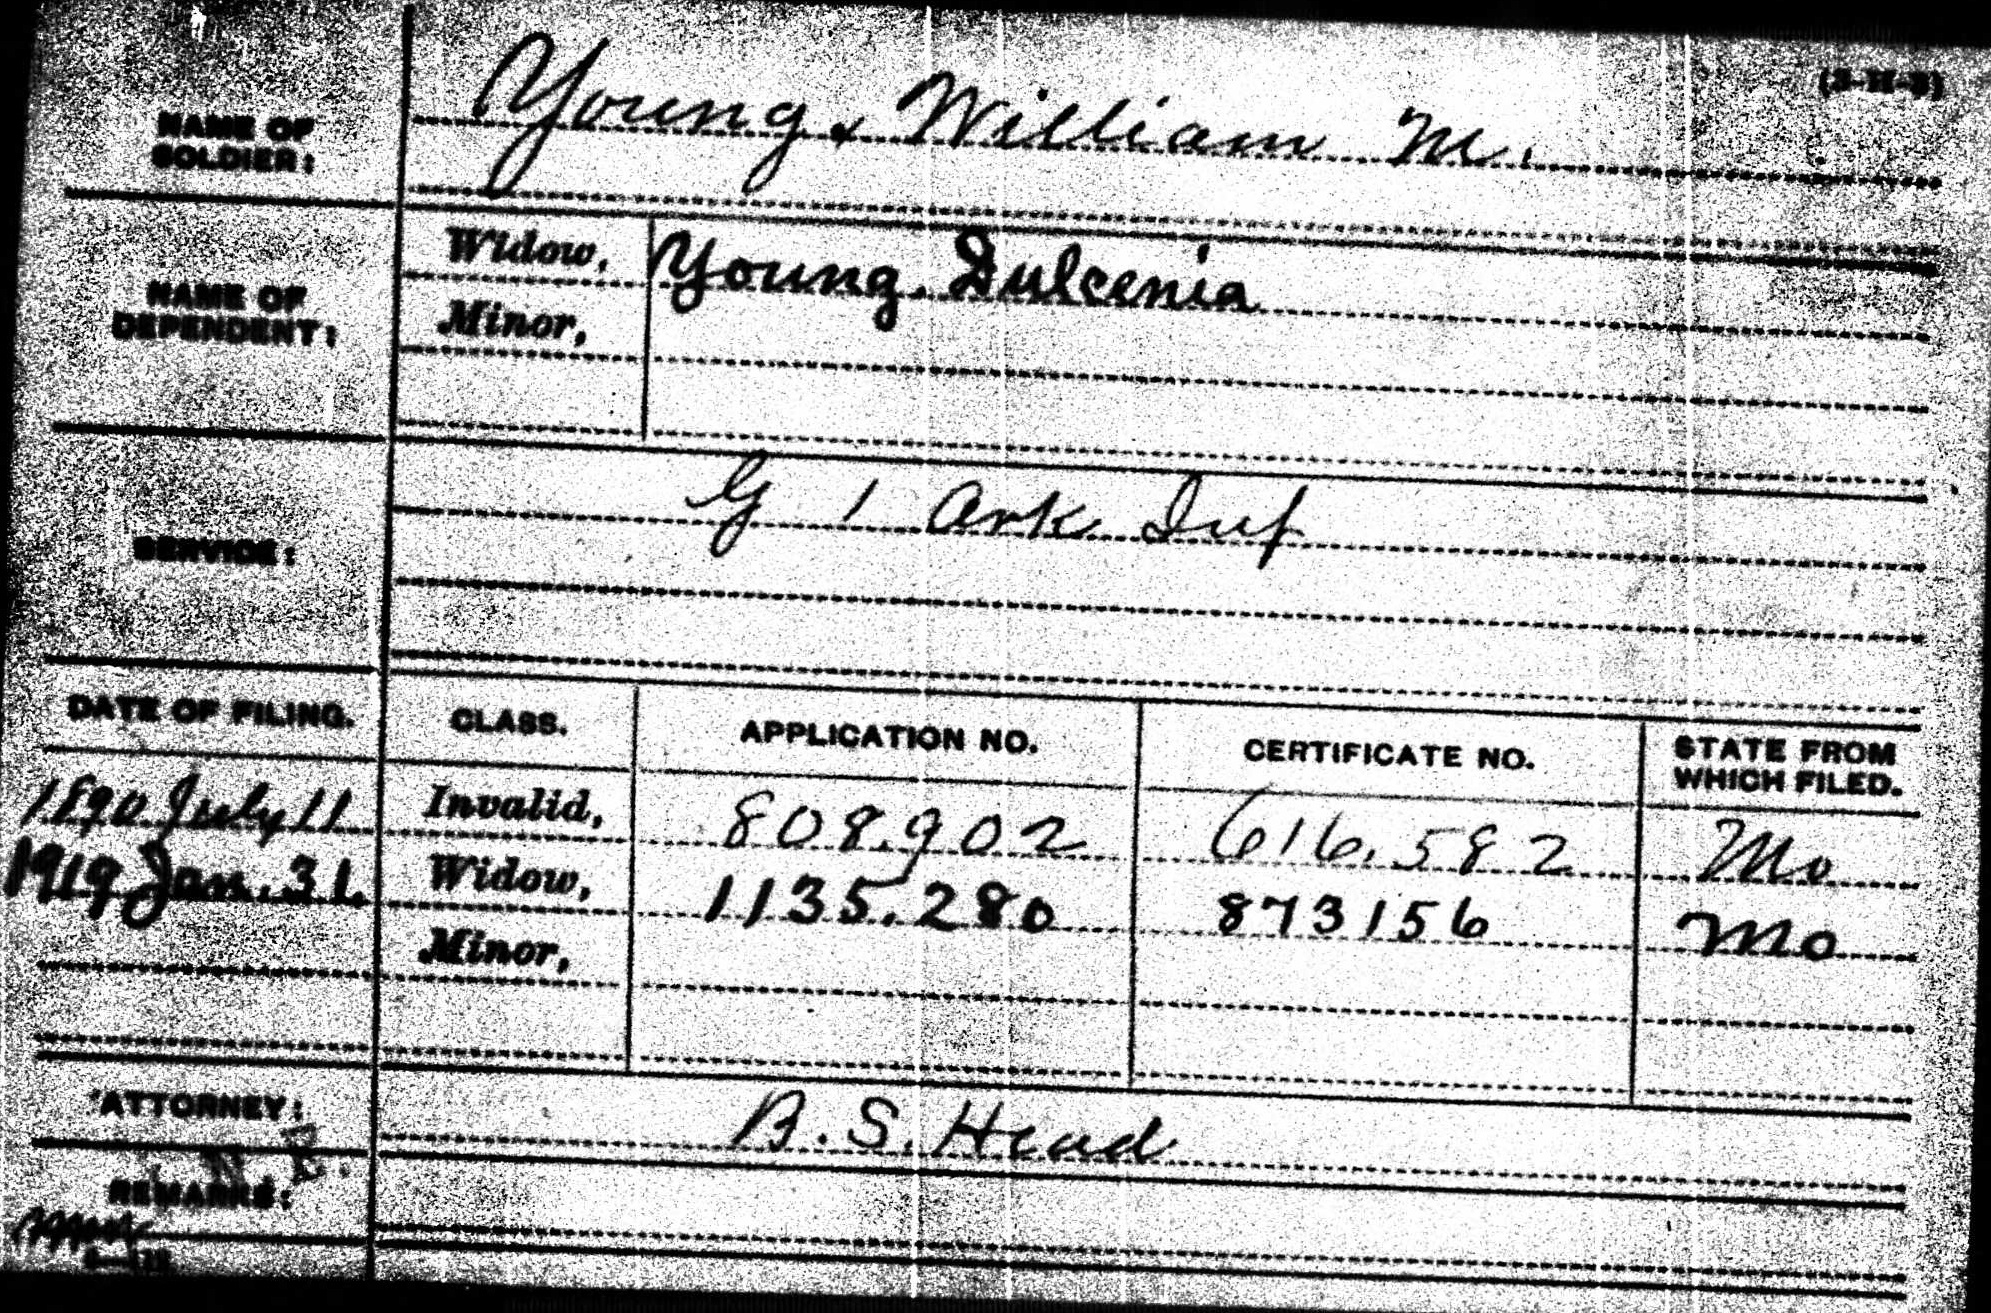 (3-H-3)
NAME OF SOLDIER: Young, William M.
NAME OF DEPENDENT: Widow, Young, Dulcenia
Minor,
SERVICE: G 1 Ark Inf
DATE OF FILING. CLASS. APPLICATION NO. CERTIFICATE NO. STATE FROM WHICH FILED.
1890 July 11 Invalid, 808,902 616,582 Mo
1919 Jan. 31. Widow, 1135.280 873156 Mo
Minor,
ATTORNEY: B. S. Head
REMARKS: